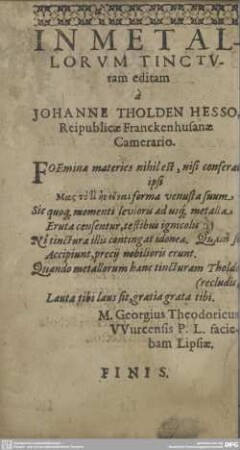 IN METAL-
LORVM TINCTV-
ram editam
à
JOHANNE THOLDEN HESSO,
Reipublicæ Franckenhusanæ
Camerario.
FOEminæ materies nihil est, nisi conferat
ipsi
forma venusta suum
Sic quoq; momenti levioris ad usq; metalla
Eruta censentur, testibus ignicolis
Ni tinctura illis contingat idonea,
Accipiunt, precij nobilioris erunt.
Quando metallorum hanc tincturam Thold
(recludis
Lauta tibi laus sit, gratia grata tibi.
M. Georgius Theodoricus
VVurcensis P. L. facie-
bam Lipsiæ,
FINIS.